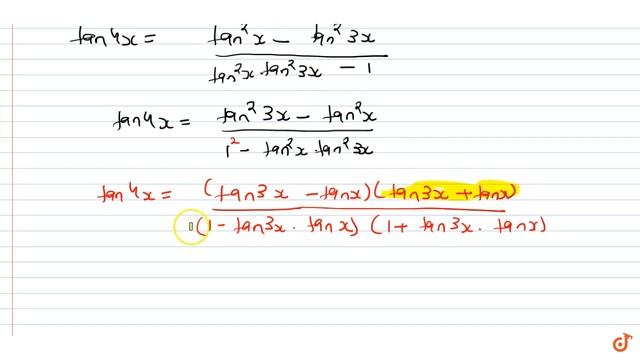 tan4x = tan²x - tan²3x / tan²x tan²3x - 1
tan4x = tan²3x - tan²x / 1² - tan²x tan²3x
tan4x = (tan3x - tanx)(tan3x + tanx) / (1 - tan3x · tanx) (1 + tan3x · tanx)